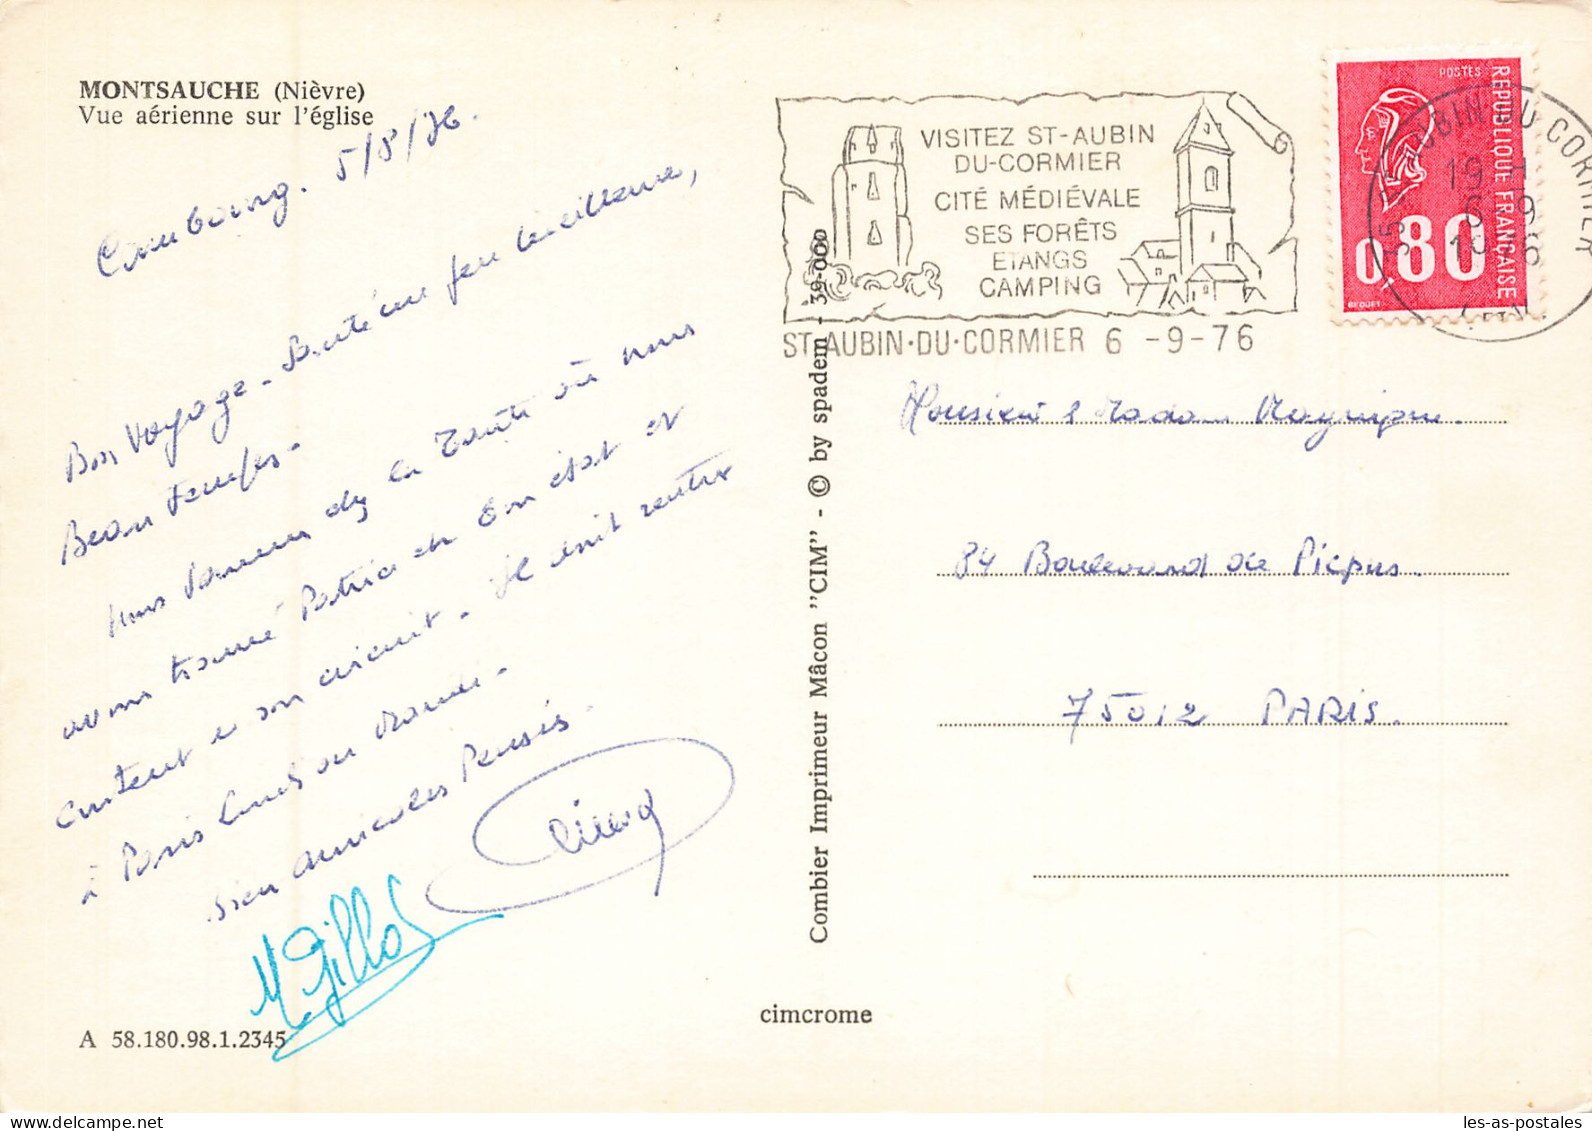 MONTSAUCHE (Nièvre)
Vue aérienne sur l'église
Combourg. 5/8/76.
Bon Voyage - Santé un peu meilleure,
Beau temps -
Nous sommes chez la Tante où nous
avons trouvé Patrice en bon état et
content de son circuit - Il doit rentrer
à Paris Lundi ou Mardi -
Bien amicales Pensées.
A 58.180.98.1.2345
VISITEZ ST-AUBIN
DU-CORMIER
CITÉ MÉDIÉVALE
SES FORÊTS
ETANGS
CAMPING
ST-AUBIN-DU-CORMIER 6 -9-76
POSTES
REPUBLIQUE FRANÇAISE
0,80
BEQUET
35 ST AUBIN DU CORMIER
19 H
6 9
1976
Combier Imprimeur Mâcon "CIM" - © by spadem - 39-000
Monsieur & Madame
84 Boulevard de Picpus.
75012 PARIS.
cimcrome
les-as-postales